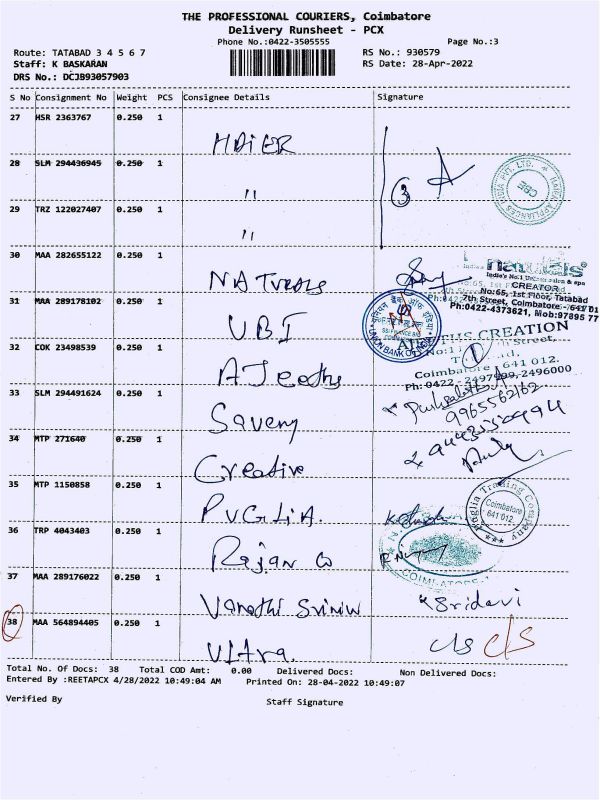 THE PROFESSIONAL COURIERS, Coimbatore
Delivery Runsheet - PCX
Phone No.:0422-3505555 Page No.:3
Route: TATABAD 3 4 5 6 7 RS No.: 930579
Staff: K BASKARAN RS Date: 28-Apr-2022
DRS No.: DCJB93057903
S No Consignment No Weight PCS Consignee Details Signature
27 HSR 2363767 0.250 1
HAIER
28 SLM 294436945 0.250 1
" 3
29 TRZ 122027407 0.250 1
"
HAIER APPLIANCES INDIA PVT. LTD. CBE
30 MAA 282655122 0.250 1
NATURALS
naturals
India's No.1 Unisex salon & spa
CREATOR
No:65, 1st Floor, Tatabad
7th Street, Coimbatore - 641 01
Ph:0422-4373621, Mob:97895 77
31 MAA 289178102 0.250 1
UBI
UNION BANK OF INDIA
32 COK 23498539 0.250 1
CREATION
Street,
Coimbatore 641 012.
Ph: 0422 - 2497999, 2496000
33 SLM 294491624 0.250 1
Savery
9965562162
34 MTP 271640 0.250 1
Creative
35 MTP 1150858 0.250 1
PUGLIA.
Puglia Trading Company
Coimbatore
641 012.
36 TRP 4043403 0.250 1
Rajan
COIMBATORE-1
37 MAA 289176022 0.250 1
Vanathi Sriniv Sridevi
38 MAA 564894405 0.250 1
Ultra. c/s c/s
Total No. Of Docs: 38 Total COD Amt: 0.00 Delivered Docs: Non Delivered Docs:
Entered By :REETAPCX 4/28/2022 10:49:04 AM Printed On: 28-04-2022 10:49:07
Verified By Staff Signature